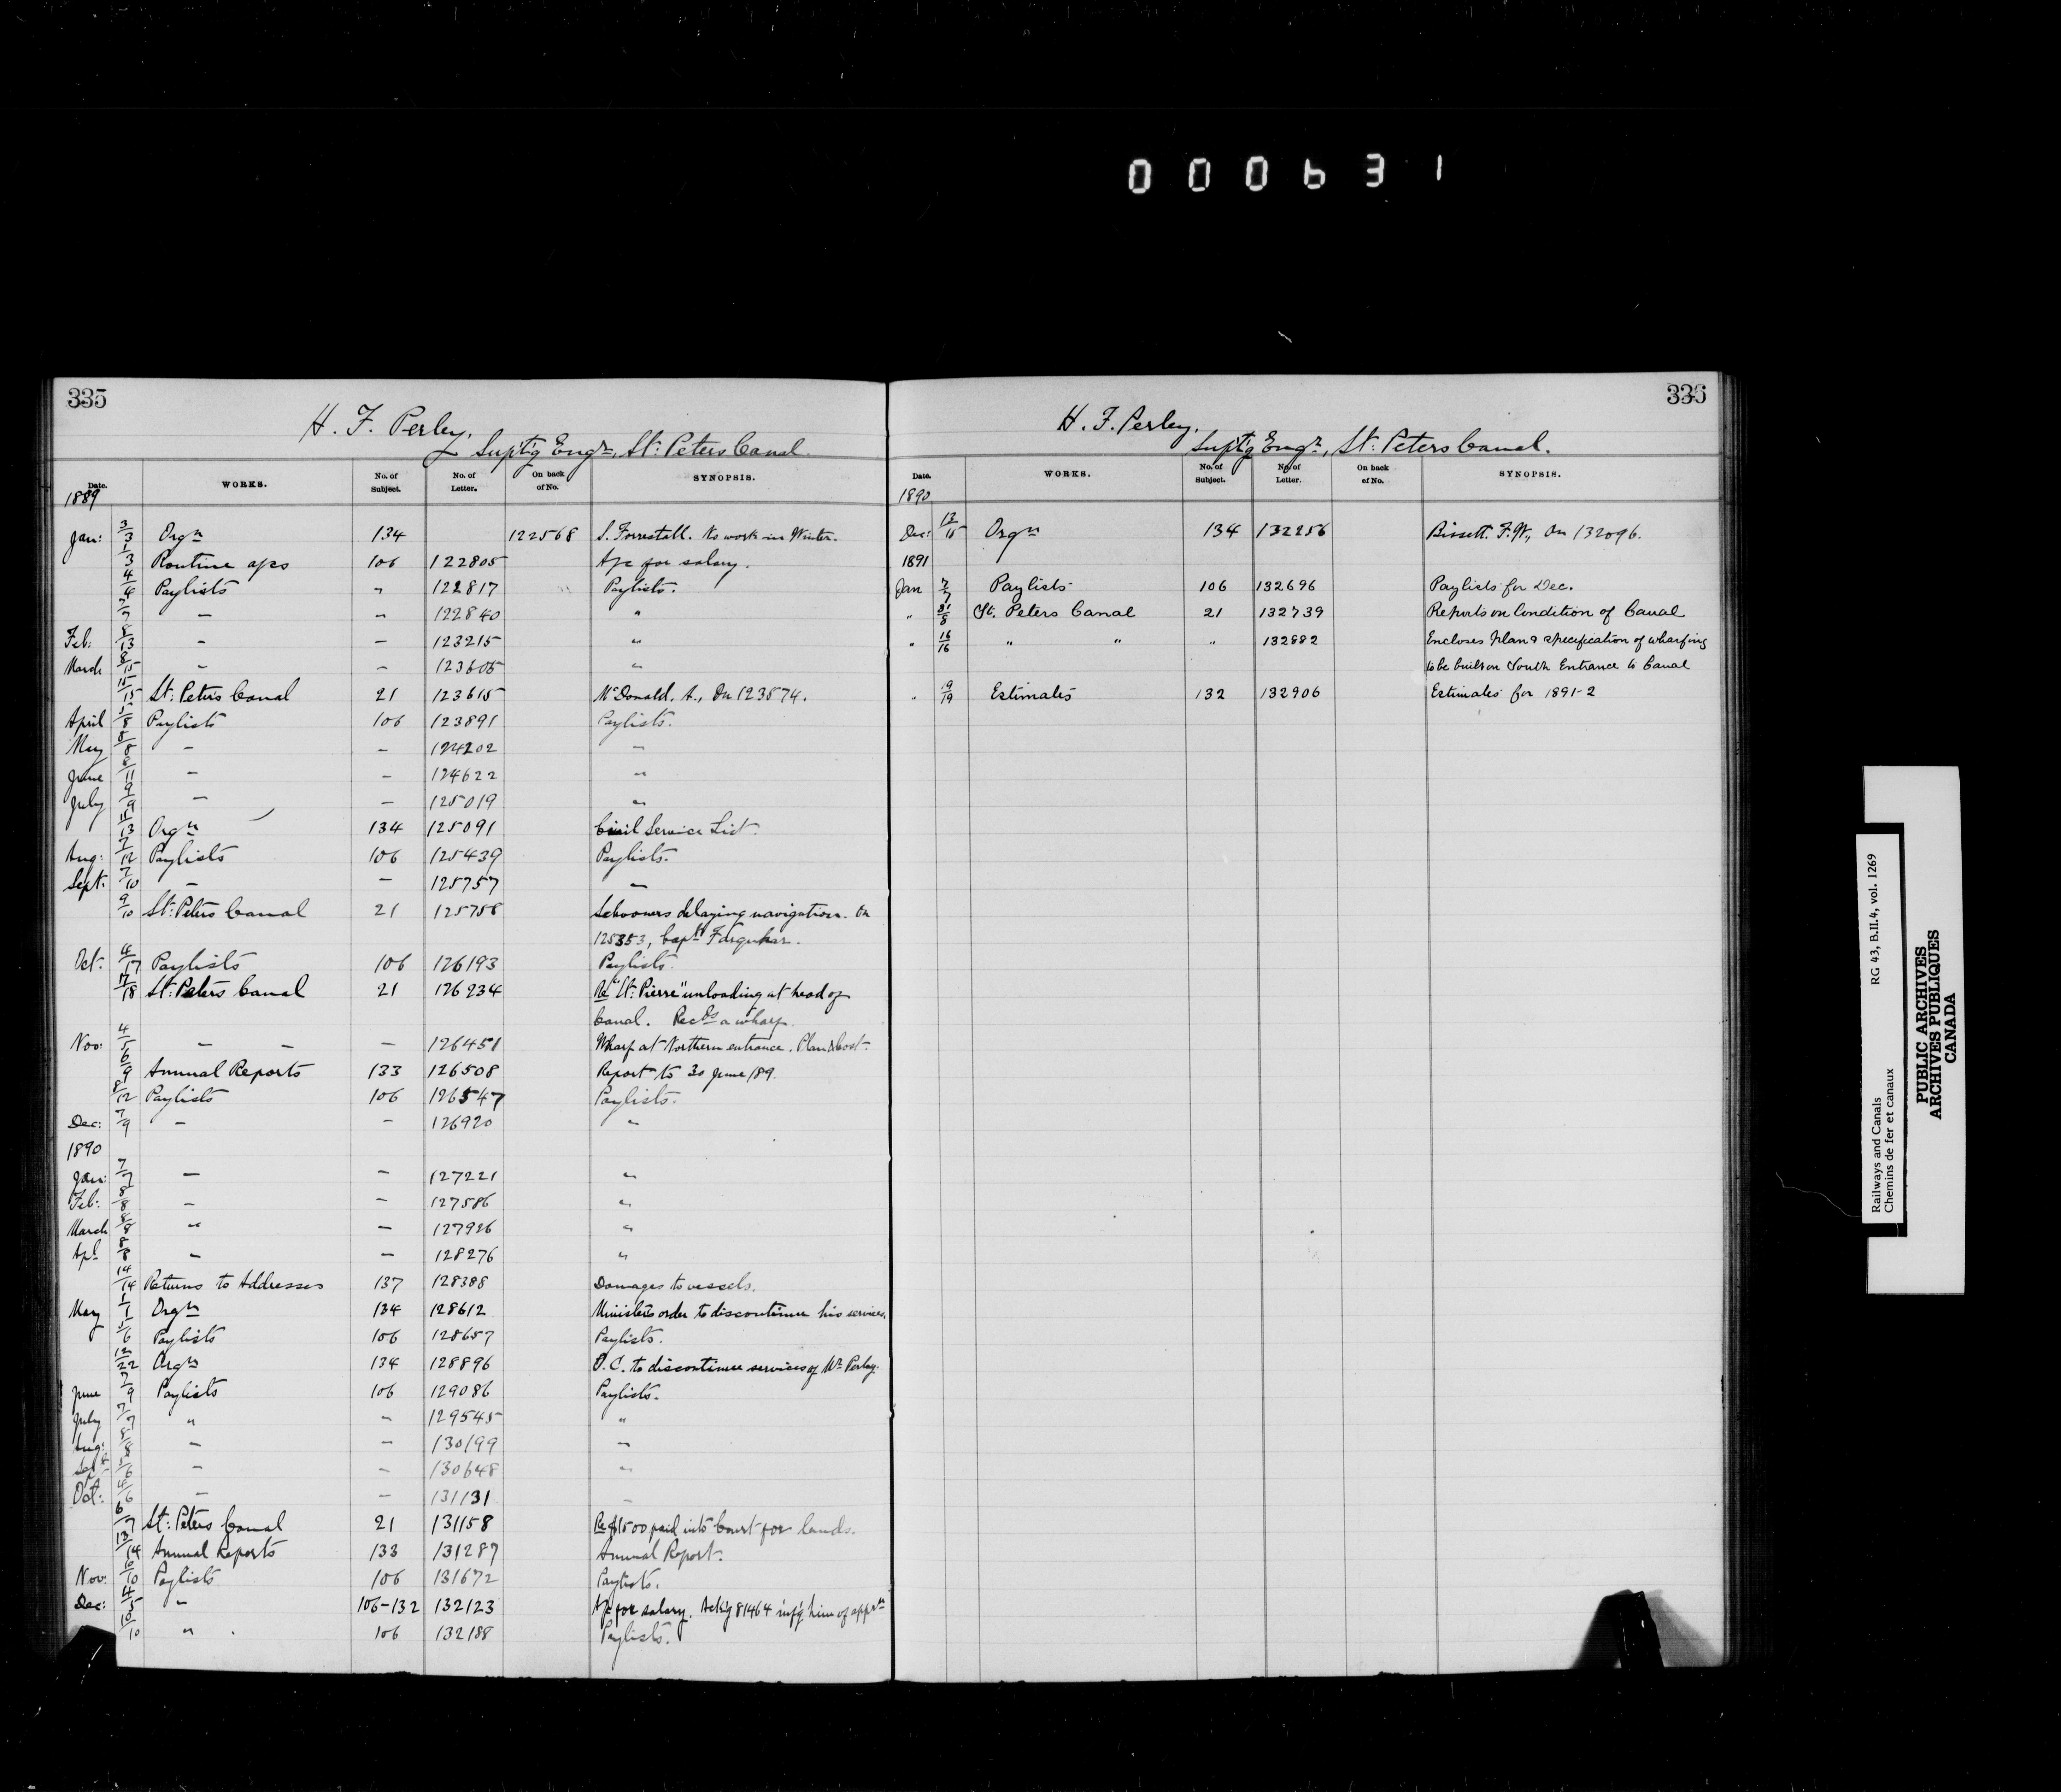 000631
335
H. F. Perley,
Supt'g Engr, St: Peters Canal.
Date. WORKS. No. of Subject. No. of Letter. On back of No. SYNOPSIS.
1889
Jan: 3/3 Orgn 134 122568 S. Forrestall. No work in Winter.
1/3 Routine a/cs 106 122805 A/c for salary.
4/4 Paylists " 122817 Paylists.
7/7 — " 122840 "
Feb: 8/13 — — 123215 "
March 8/15 — — 123605 "
15/15 St: Peters Canal 21 123615 McDonald, A., On 123874.
April 5/8 Paylists 106 123891 Paylists.
May 8/8 — — 124202 "
June 8/11 — — 124622 "
July 9/9 — — 125019 "
13 Orgn 134 125091 Civil Service List.
Aug: 7/12 Paylists 106 125439 Paylists.
Sept. 7/10 — — 125757 —
9/10 St: Peters Canal 21 125758 Schooners delaying navigation. On
125353, Capt. Farquhar.
Oct: 4/17 Paylists 106 126193 Paylists.
17/18 St: Peters Canal 21 126234 Re "St: Pierre" unloading at head of
Canal. Recds a wharf.
Nov: 4/5 — — — 126451 Wharf at Northern entrance. Plan & Cost.
6/9 Annual Reports 133 126508 Report to 30 June/89.
8/12 Paylists 106 126547 Paylists.
Dec: 7/9 — — 126920 "
1890
Jan: 7/7 — — 127221 "
Feb: 8/8 — — 127586 "
March 8/8 " — 127926 "
Apl 8/8 — — 128276 "
14/14 Returns to Addresses 137 128388 Damages to vessels.
May 1/1 Orgn 134 128612 Minister's order to discontinue his services.
5/6 Paylists 106 128657 Paylists.
12/22 Orgn 134 128896 O. C. to discontinue services of Mr Perley.
June 7/9 Paylists 106 129086 Paylists.
July 7/7 " " 129545 "
Aug: 8/8 — — 130199 "
Sept 5/6 — — 130648 "
Oct: 4/6 — — 131131 —
6/7 St: Peters Canal 21 131158 Re $1500 paid into Court for lands.
13/14 Annual Reports 133 131287 Annual Report.
Nov: 6/10 Paylists 106 131672 Paylists.
Dec: 4/5 " 106-132 132123 A/c for salary. Ack'g 81464 inf'g him of appt
10/10 " 106 132188 Paylists.
336
H. F. Perley,
Supt'g Engr, St: Peters Canal.
Date. WORKS. No. of Subject. No. of Letter. On back of No. SYNOPSIS.
1890
Dec: 12/15 Orgn 134 132256 Bissett. F. W., On 132096.
1891
Jan 7/7 Paylists 106 132696 Paylists for Dec.
" 31/8 St. Peters Canal 21 132739 Reports on Condition of Canal
" 16/16 " " " 132882 Encloses plan & specification of wharfing
to be built on South Entrance to Canal
" 19/19 Estimates 132 132906 Estimates for 1891-2
Railways and Canals RG 43, B.II.4, vol. 1269
Chemins de fer et canaux
PUBLIC ARCHIVES
ARCHIVES PUBLIQUES
CANADA